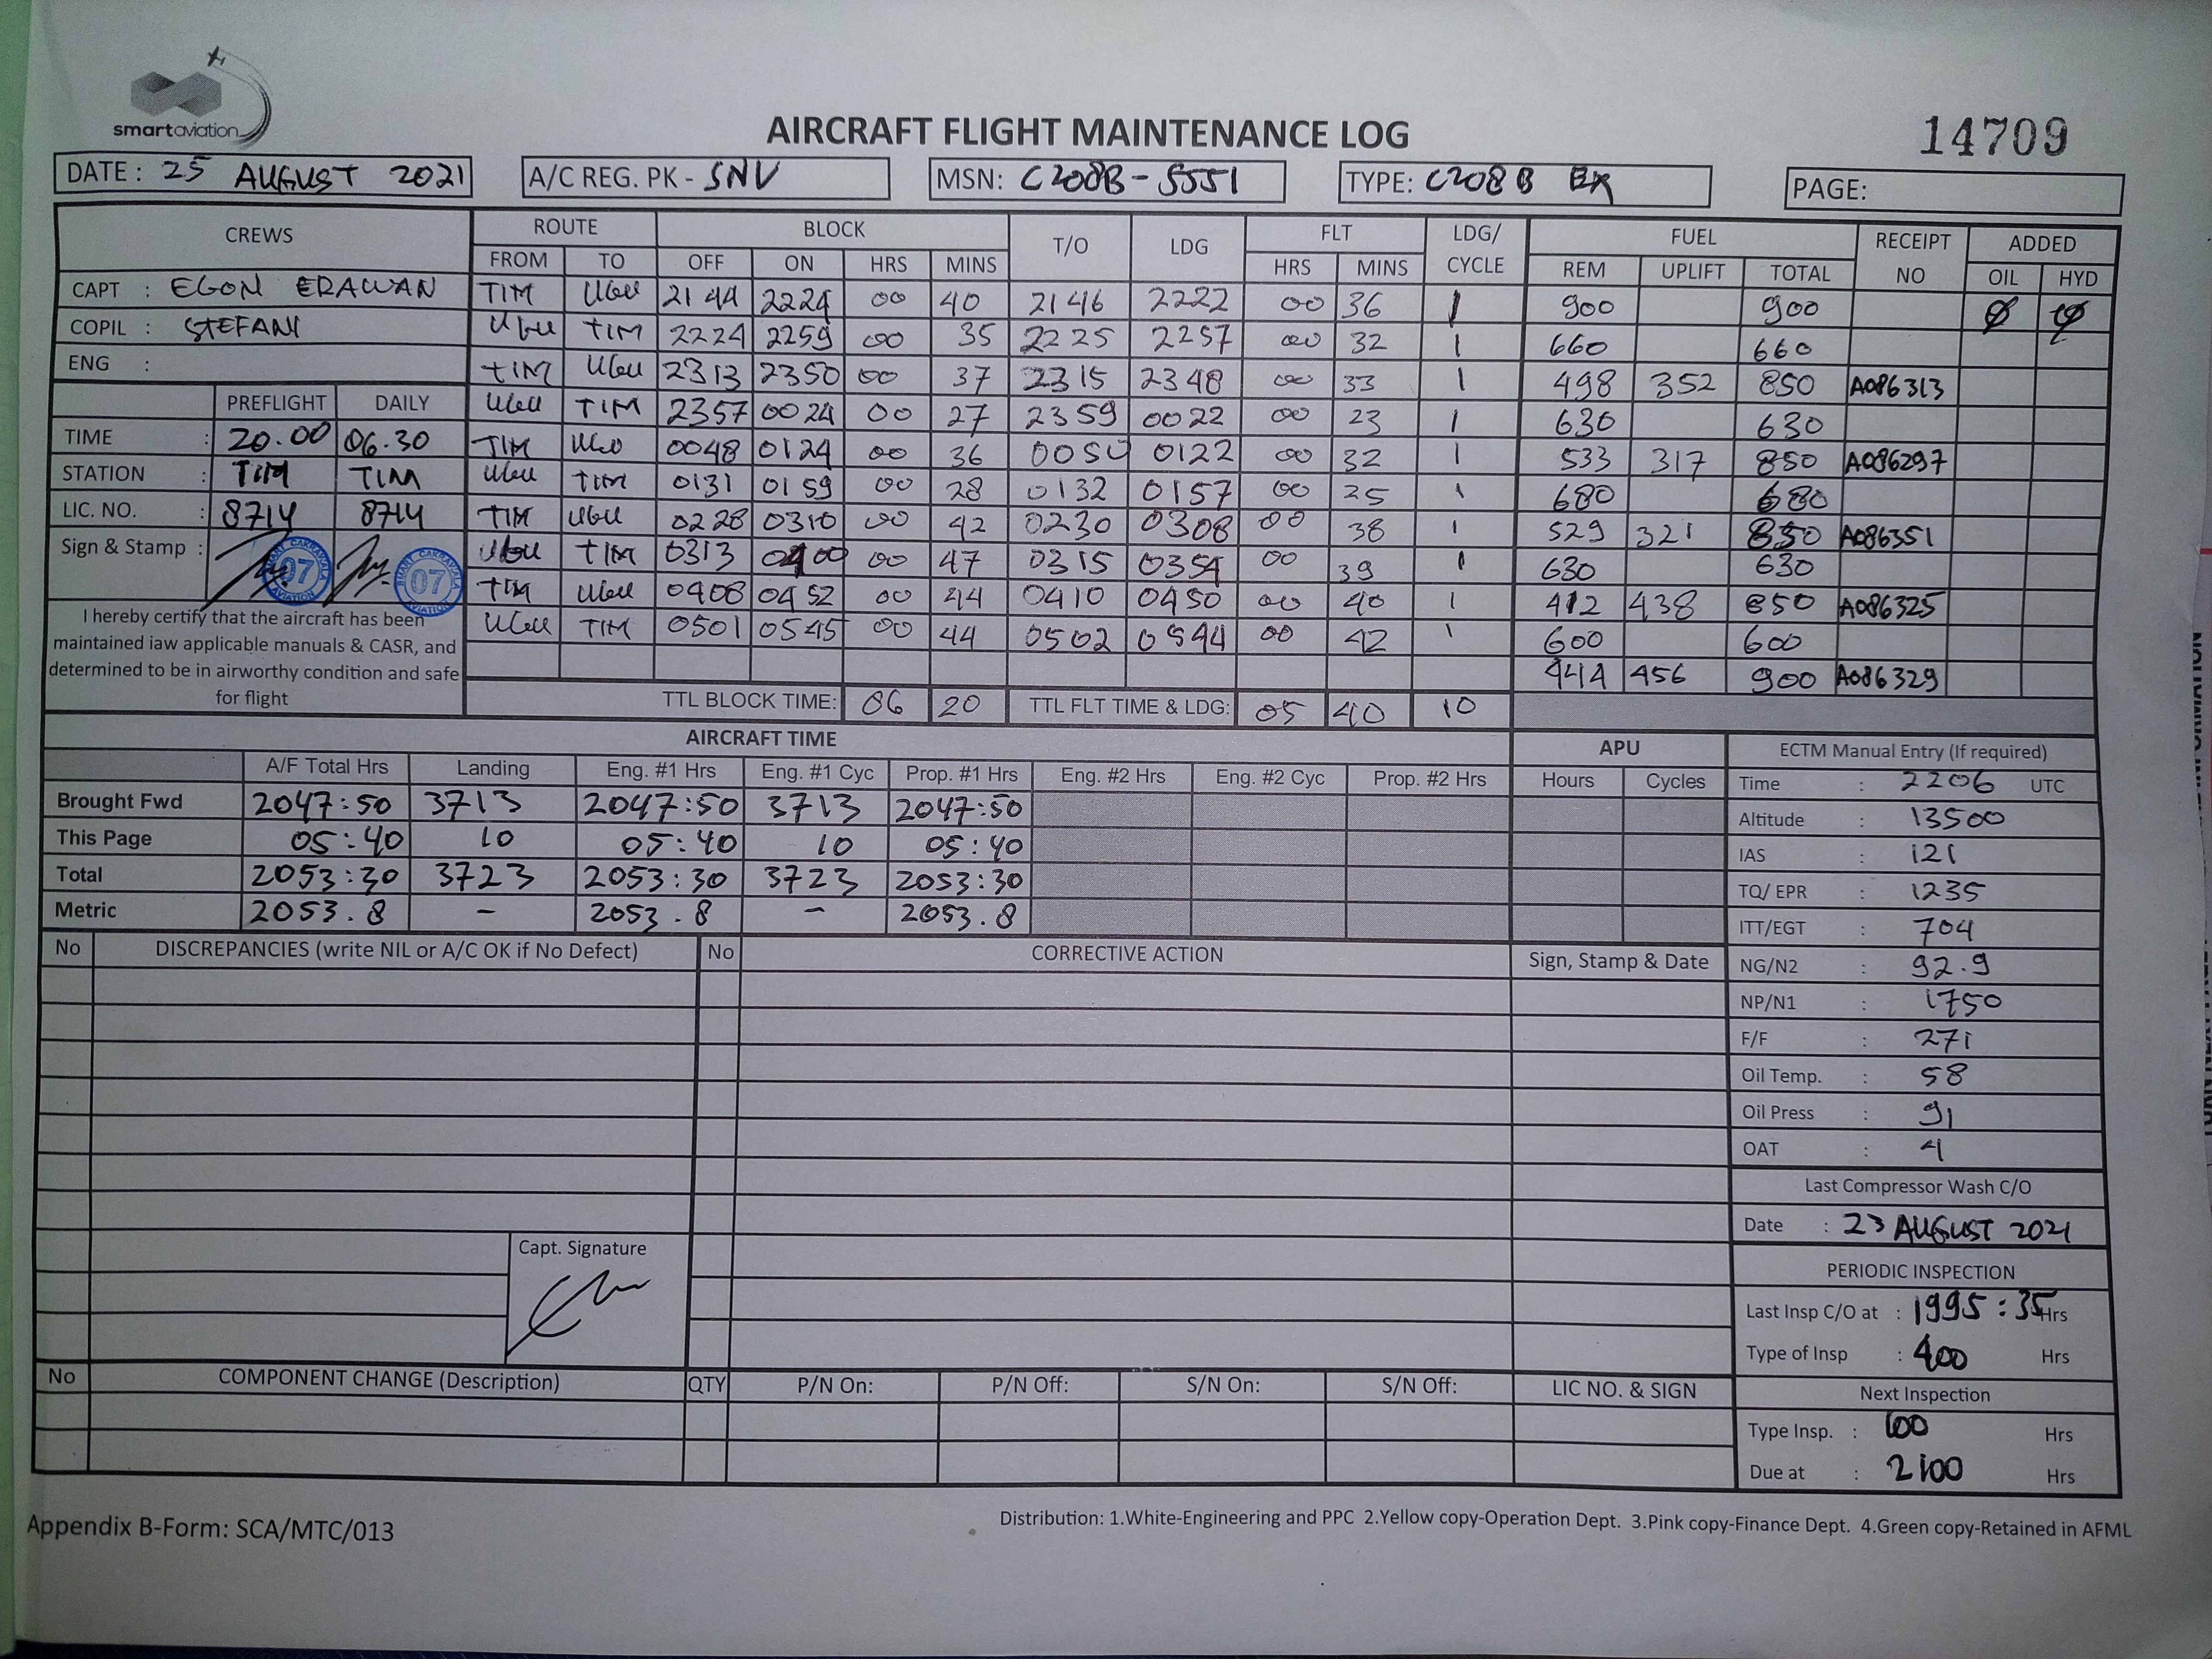 smartaviation
AIRCRAFT FLIGHT MAINTENANCE LOG
14709
DATE : 25 AUGUST 2021 A/C REG. PK - SNV MSN: C208B-5551 TYPE: C208 B EX PAGE:
CREWS ROUTE BLOCK T/O LDG FLT LDG/ CYCLE FUEL RECEIPT NO ADDED
FROM TO OFF ON HRS MINS HRS MINS REM UPLIFT TOTAL OIL HYD
CAPT : EGON ERAWAN
COPIL : STEFANI
ENG :
TIM UGU 2144 2224 00 40 2146 2222 00 36 1 900 900 0 0
UGU TIM 2224 2259 00 35 2225 2257 00 32 1 660 660
TIM UGU 2313 2350 00 37 2315 2348 00 33 1 498 352 850 A086313
UGU TIM 2357 0024 00 27 2359 0022 00 23 1 630 630
TIM UGU 0048 0124 00 36 0050 0122 00 32 1 533 317 850 A086297
UGU TIM 0131 0159 00 28 0132 0157 00 25 1 680 680
TIM UGU 0228 0310 00 42 0230 0308 00 38 1 529 321 850 A086351
UGU TIM 0313 0400 00 47 0315 0354 00 39 1 630 630
TIM UGU 0408 0452 00 44 0410 0450 00 40 1 412 438 850 A086325
UGU TIM 0501 0545 00 44 0502 0544 00 42 1 600 600
444 456 900 A086329
TTL BLOCK TIME: 06 20 TTL FLT TIME & LDG: 05 40 10
PREFLIGHT DAILY
TIME : 20.00 06.30
STATION : TIM TIM
LIC. NO. : 8714 8714
Sign & Stamp :
SMART CAKRAWALA AVIATION 07
SMART CAKRAWALA AVIATION 07
I hereby certify that the aircraft has been
maintained iaw applicable manuals & CASR, and
determined to be in airworthy condition and safe
for flight
AIRCRAFT TIME
A/F Total Hrs Landing Eng. #1 Hrs Eng. #1 Cyc Prop. #1 Hrs Eng. #2 Hrs Eng. #2 Cyc Prop. #2 Hrs
Brought Fwd 2047:50 3713 2047:50 3713 2047:50
This Page 05:40 10 05:40 10 05:40
Total 2053:30 3723 2053:30 3723 2053:30
Metric 2053.8 - 2053.8 - 2053.8
APU
Hours Cycles
ECTM Manual Entry (If required)
Time : 2206 UTC
Altitude : 13500
IAS : 121
TQ/ EPR : 1235
ITT/EGT : 704
NG/N2 : 92.9
NP/N1 : 1750
F/F : 271
Oil Temp. : 58
Oil Press : 91
OAT : 4
Last Compressor Wash C/O
Date : 23 AUGUST 2021
PERIODIC INSPECTION
Last Insp C/O at : 1995:35 Hrs
Type of Insp : 400 Hrs
Next Inspection
Type Insp. : 100 Hrs
Due at : 2100 Hrs
No DISCREPANCIES (write NIL or A/C OK if No Defect) No CORRECTIVE ACTION Sign, Stamp & Date
Capt. Signature
No COMPONENT CHANGE (Description) QTY P/N On: P/N Off: S/N On: S/N Off: LIC NO. & SIGN
Appendix B-Form: SCA/MTC/013
Distribution: 1.White-Engineering and PPC 2.Yellow copy-Operation Dept. 3.Pink copy-Finance Dept. 4.Green copy-Retained in AFML